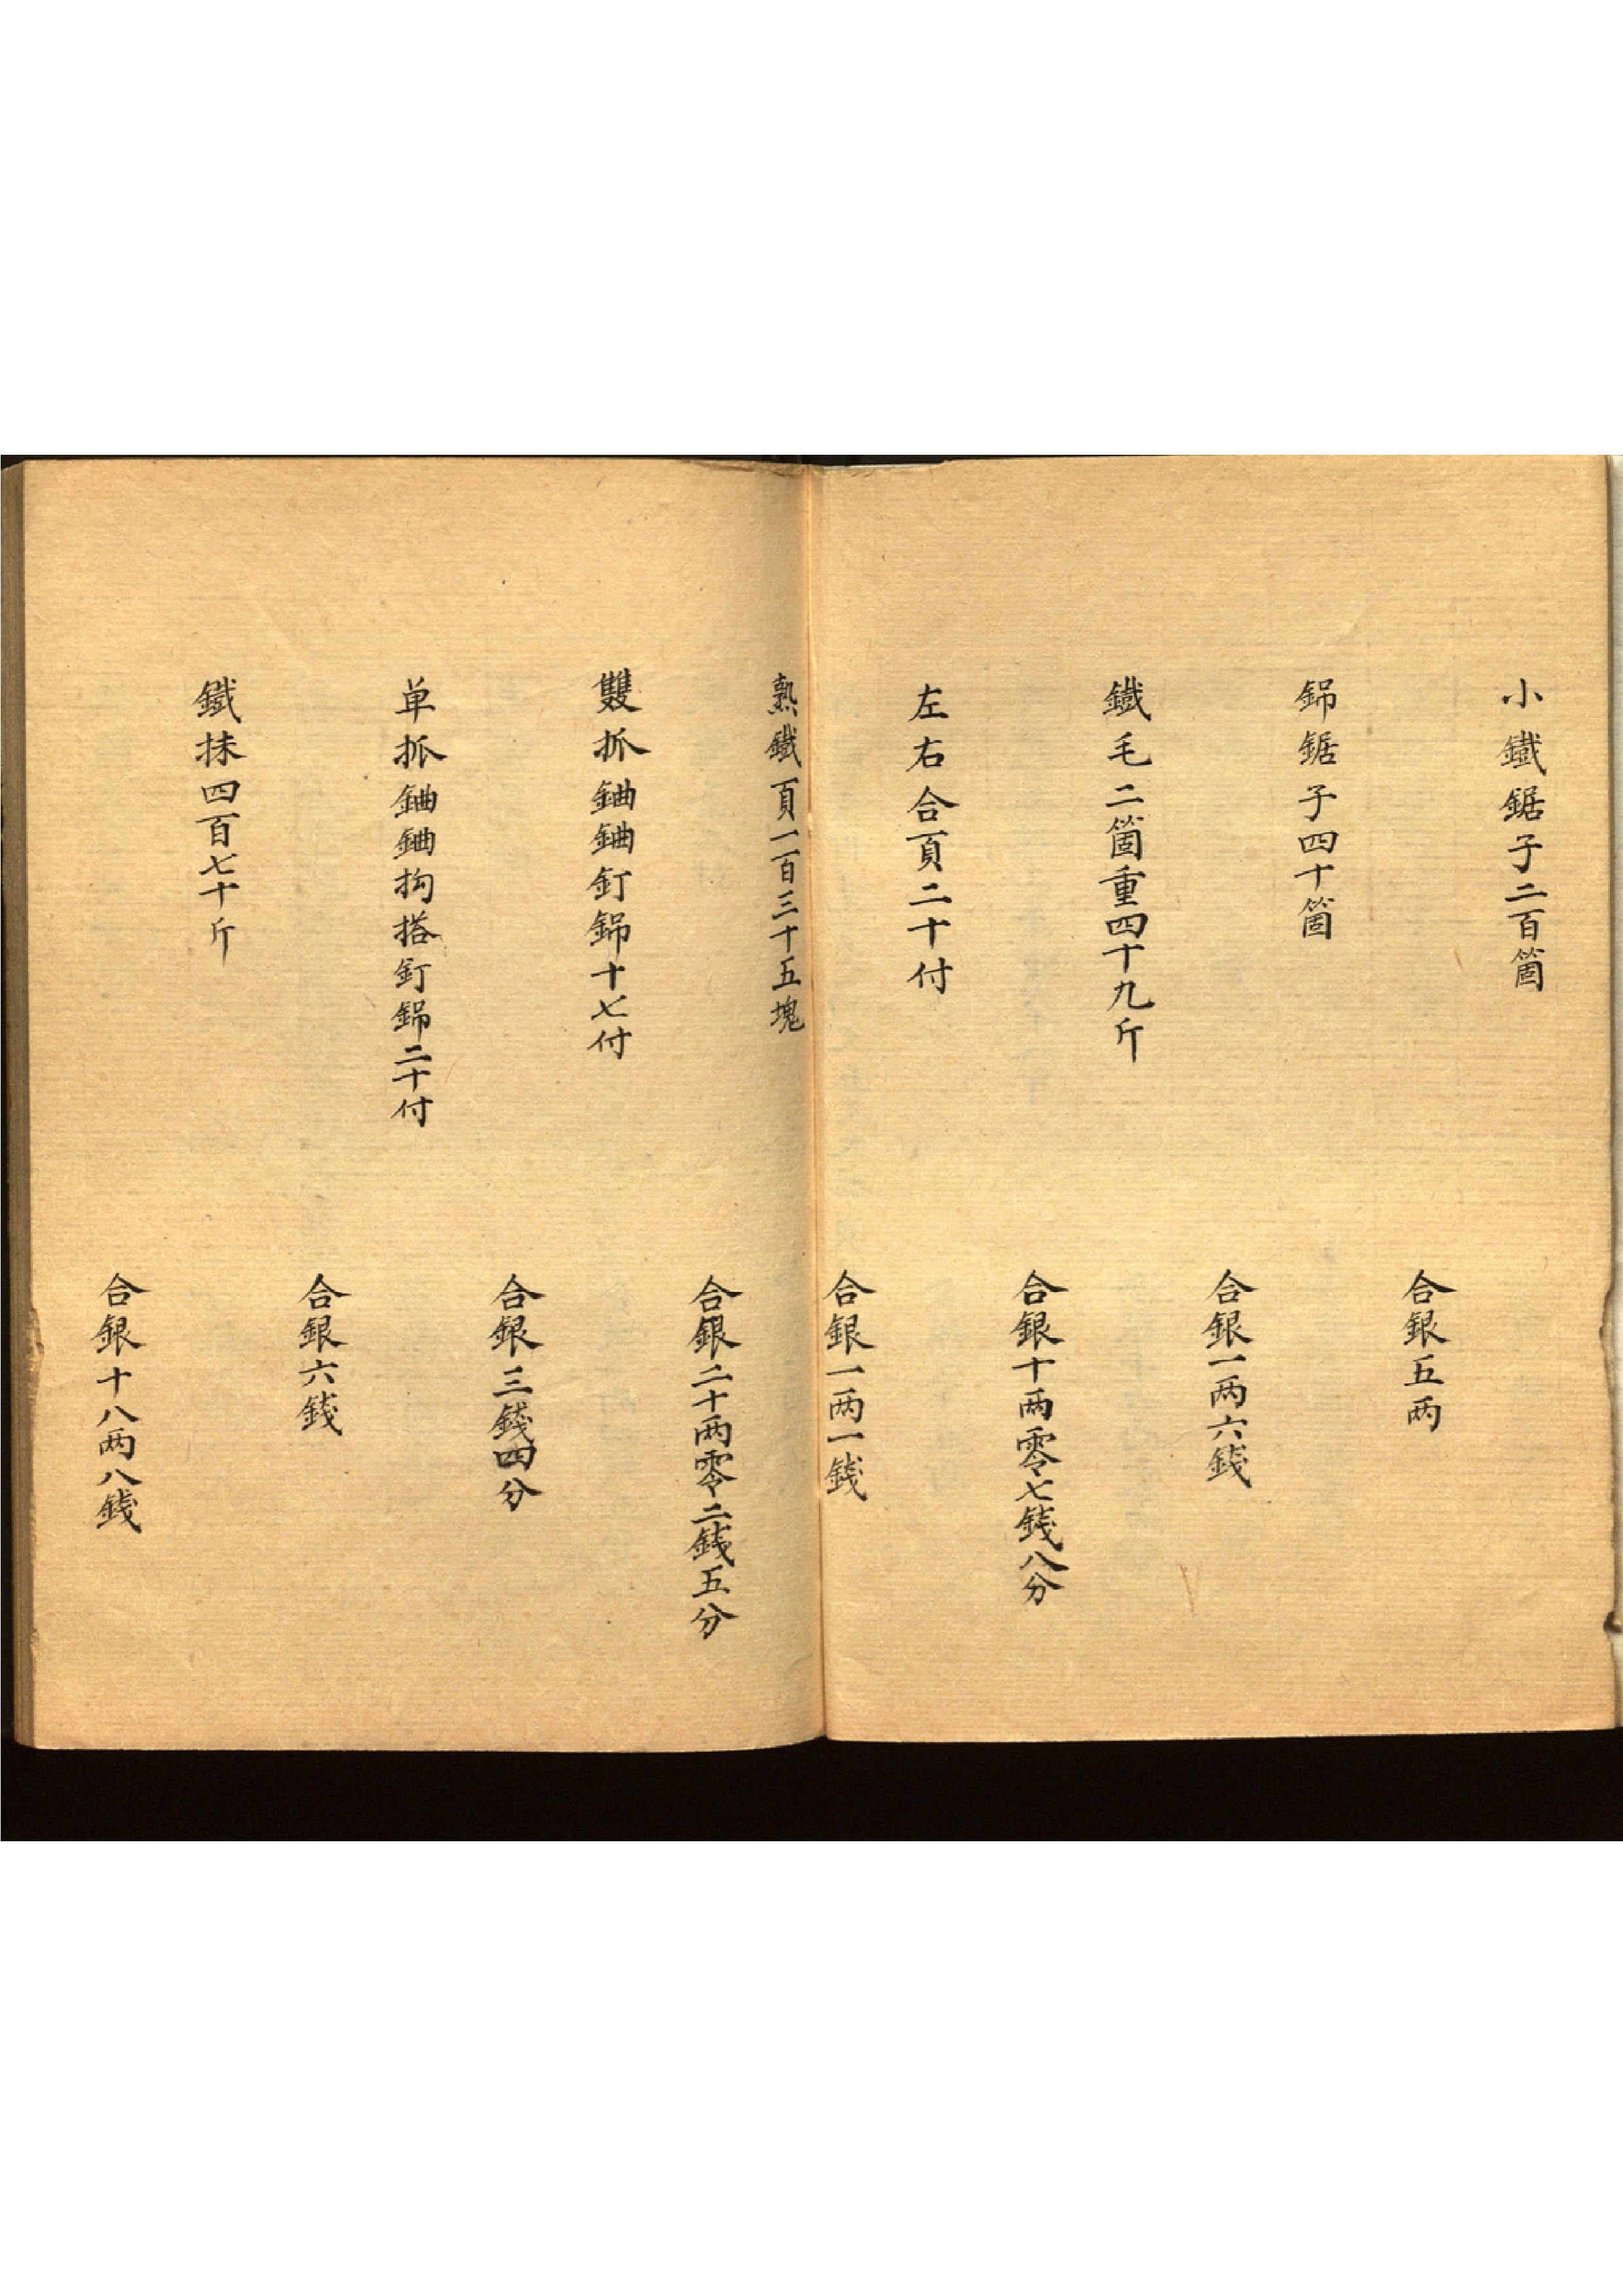 小鐵鋸子二百箇
合銀五两
鋦鋸子四十箇
合銀一两六錢
鐵毛二箇重四十九斤
合銀十两零七錢八分
左右合頁二十付
合銀一两一錢
熟鐵頁一百三十五塊
合銀二十两零二錢五分
雙抓釘十七付
合銀三錢四分
单抓搭釘二十付
合銀六錢
鐵抹四百七十斤
合銀十八两八錢